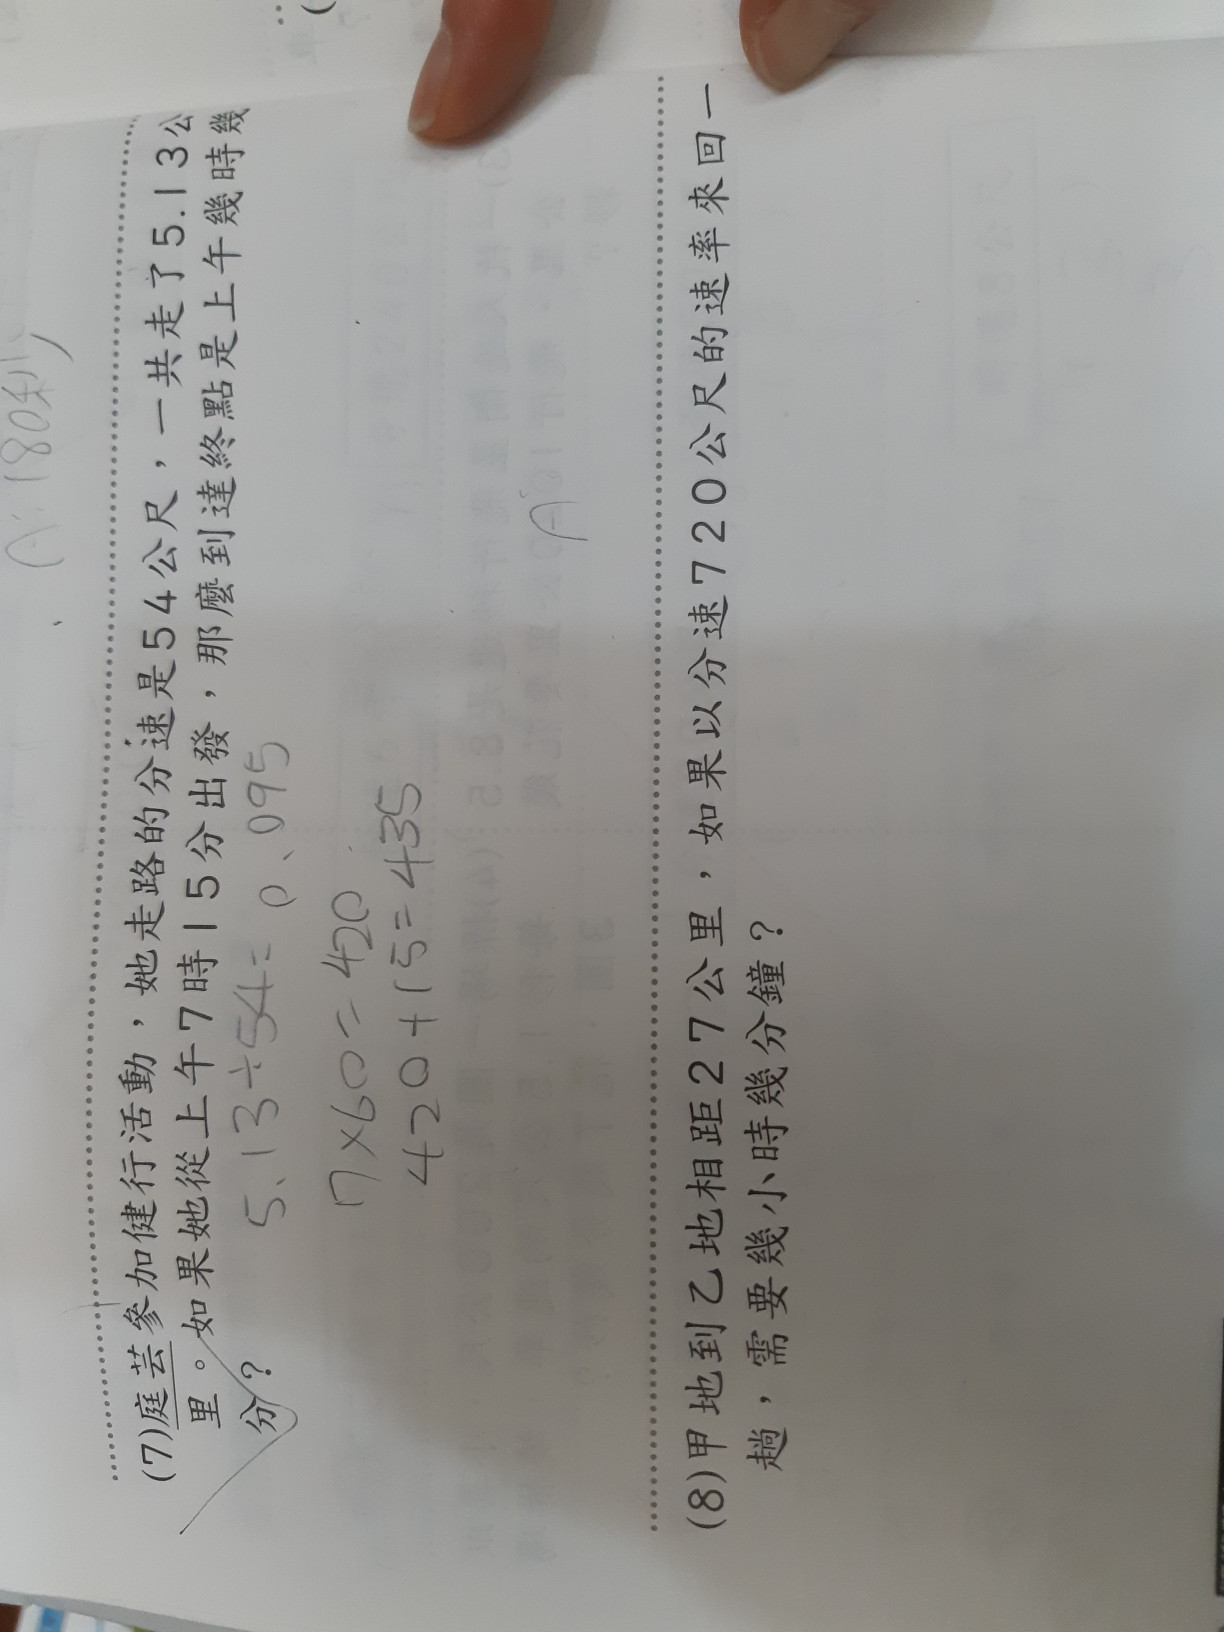 A:180秒
(7)庭芸參加健行活動，她走路的分速是54公尺，一共走了5.13公
里。如果她從上午7時15分出發，那麼到達終點是上午幾時幾
分？
5.13÷54=0.095
7×60=420
420+15=435
A:
(8)甲地到乙地相距27公里，如果以分速720公尺的速率來回一
趟，需要幾小時幾分鐘？